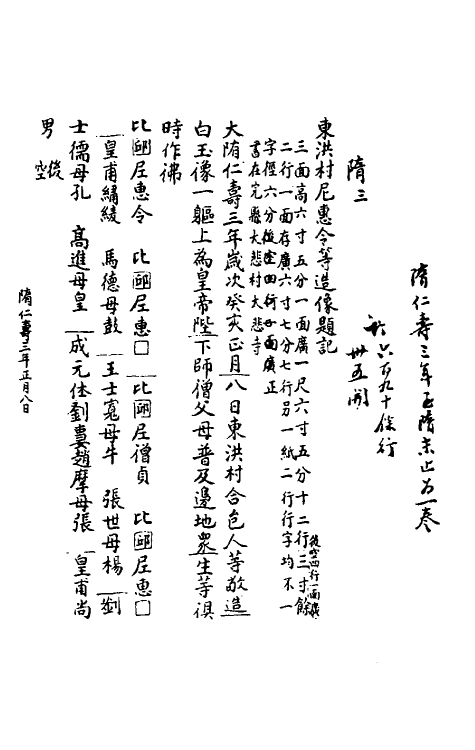 隋仁壽三年至隋末止为一卷
计六百九十餘行
卅五開
隋三
東洪村尼惠令等造像題記
三面高六寸五分一面廣一尺六寸五分十二行三寸餘後空四行一面廣
二行一面存廣六寸七分七行另一紙二行行字均不一
字徑六分正
書在完縣大悲村大悲寺
大隋仁壽三年歲次癸亥正月八日東洪村合邑人等敬造
白玉像一軀上為皇帝陛下師僧父母普及邊地眾生等俱
時作佛
比邱尼惠令 比邱尼惠□ 比邱尼僧貞 比邱尼惠□
皇甫繡綾 馬德母鼓 王士寬母牛 張世母楊 劉
士儒母孔 高進母皇 成元伕劉婁趙摩母張 皇甫尚
男 後空
隋仁壽三年正月八日